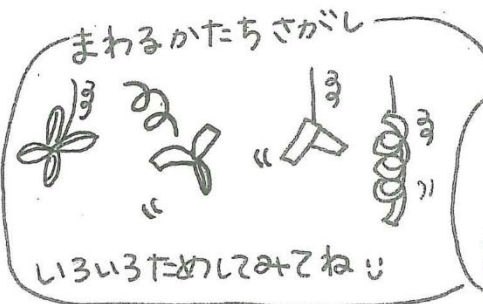 まわるかたちさがし
いろいろためしてみてね